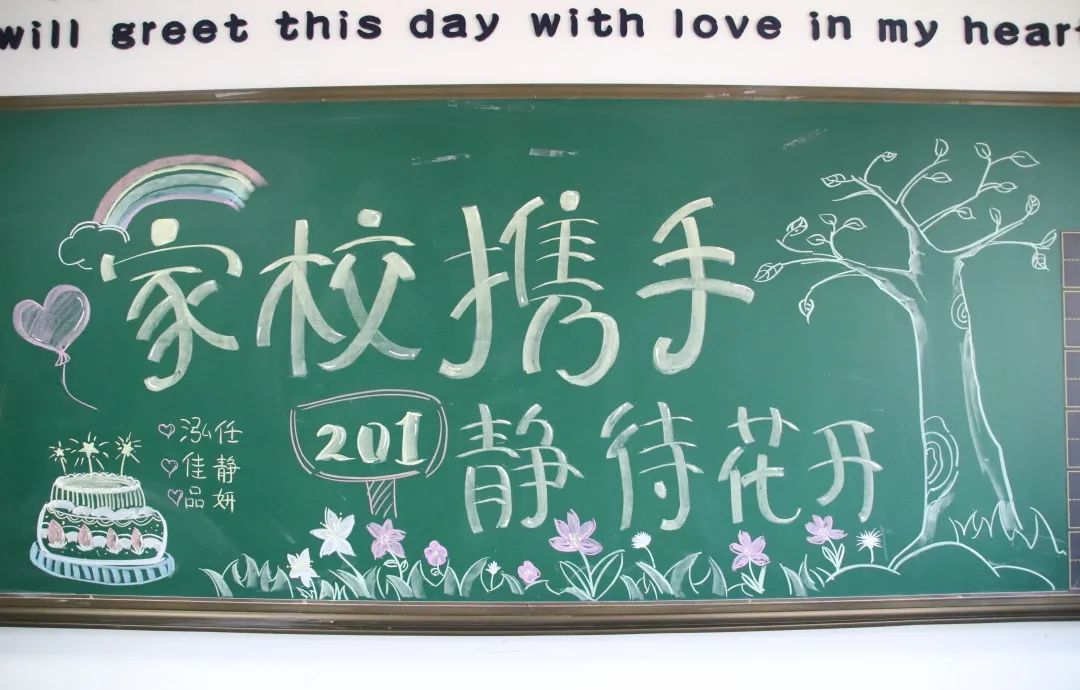 will greet this day with love in my heart
家校携手
201
静待花开
泓任
佳静
品妍